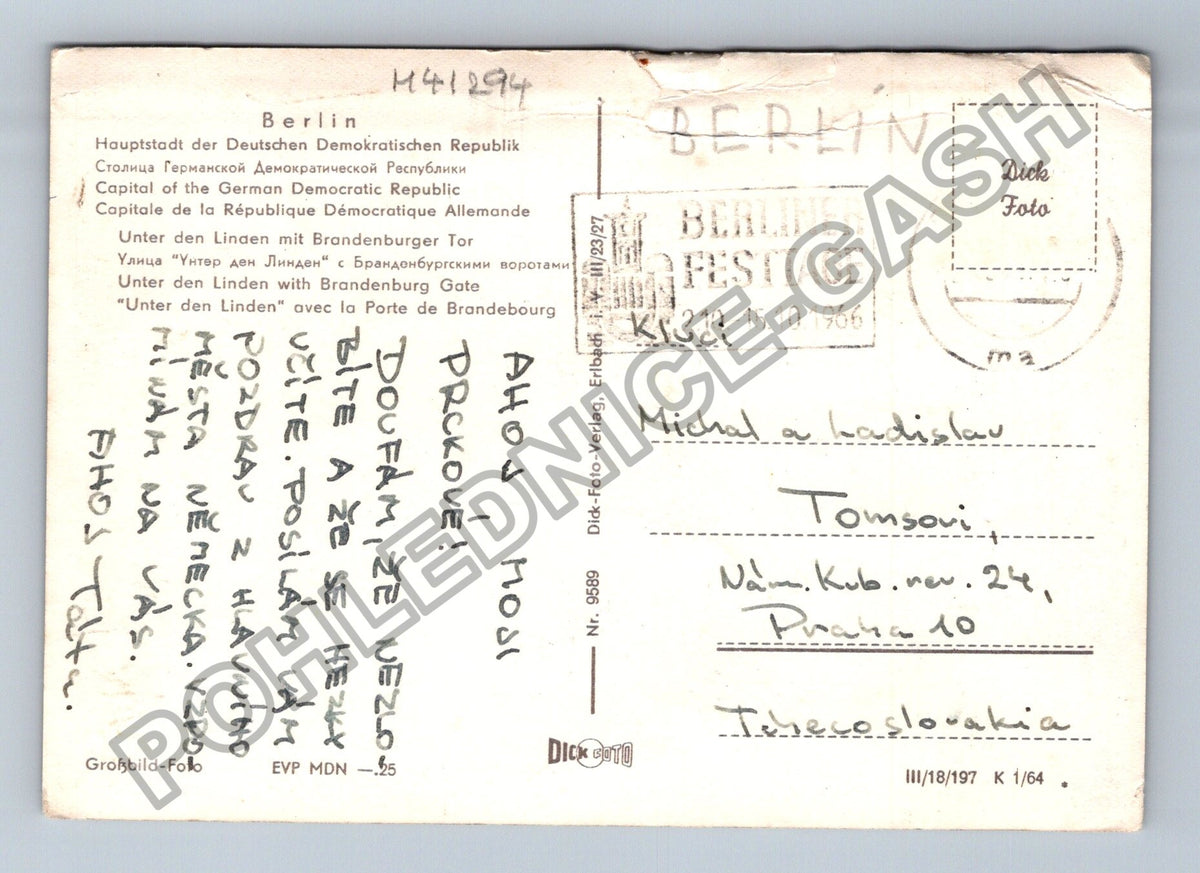 M41294
BERLIN
Berlin
Hauptstadt der Deutschen Demokratischen Republik
Столица Германской Демократической Республики
Capital of the German Democratic Republic
Capitale de la République Démocratique Allemande
Unter den Linden mit Brandenburger Tor
Улица "Унтер ден Линден" с Бранденбургскими воротами
Unter den Linden with Brandenburg Gate
"Unter den Linden" avec la Porte de Brandebourg
AHOJ, MOJI
PRCKOVÉ!
DOUFÁM, ŽE NEZLO-
BÍTE A ŽE SE HEZKY
UČÍTE. POSÍLÁM VÁM
POZDRAV Z HLAVNÍHO
MĚSTA NĚMECKA. VZPO-
MÍNÁM NA VÁS.
AHOJ Táta.
Großbild-Foto
EVP MDN —.25
Nr. 9589 Dick-Foto-Verlag, Erlbach i. V. III/23/27
DICK FOTO
BERLINER
FESTTAGE
2.10.-16.10.1966
Dick
Foto
ma
Kluci
Michal a Ladislav
Tomsovi,
Nám. Kub. rev. 24,
Praha 10
Tchecoslovakia
III/18/197 K 1/64
POHLEDNICE-GASH